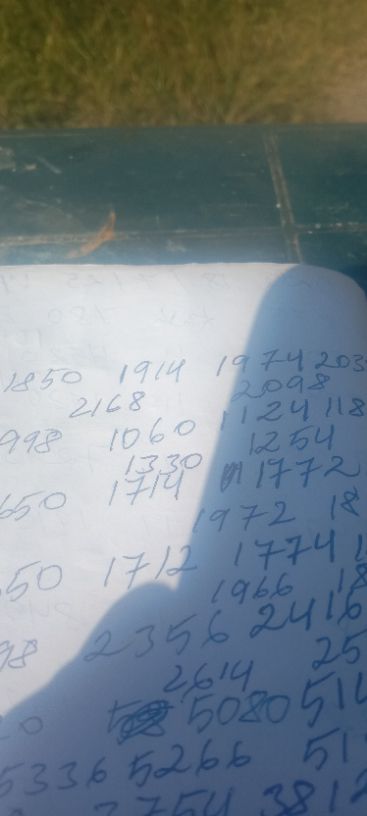 1850 1914 1974 203
2168 2098
998 1060 1124 118
1330 1254
650 1714 1772
1972 18
50 1712 1774 1
1966 18
98 2356 2416
2614 25
20 5080 514
5336 5266 51
3754 3812